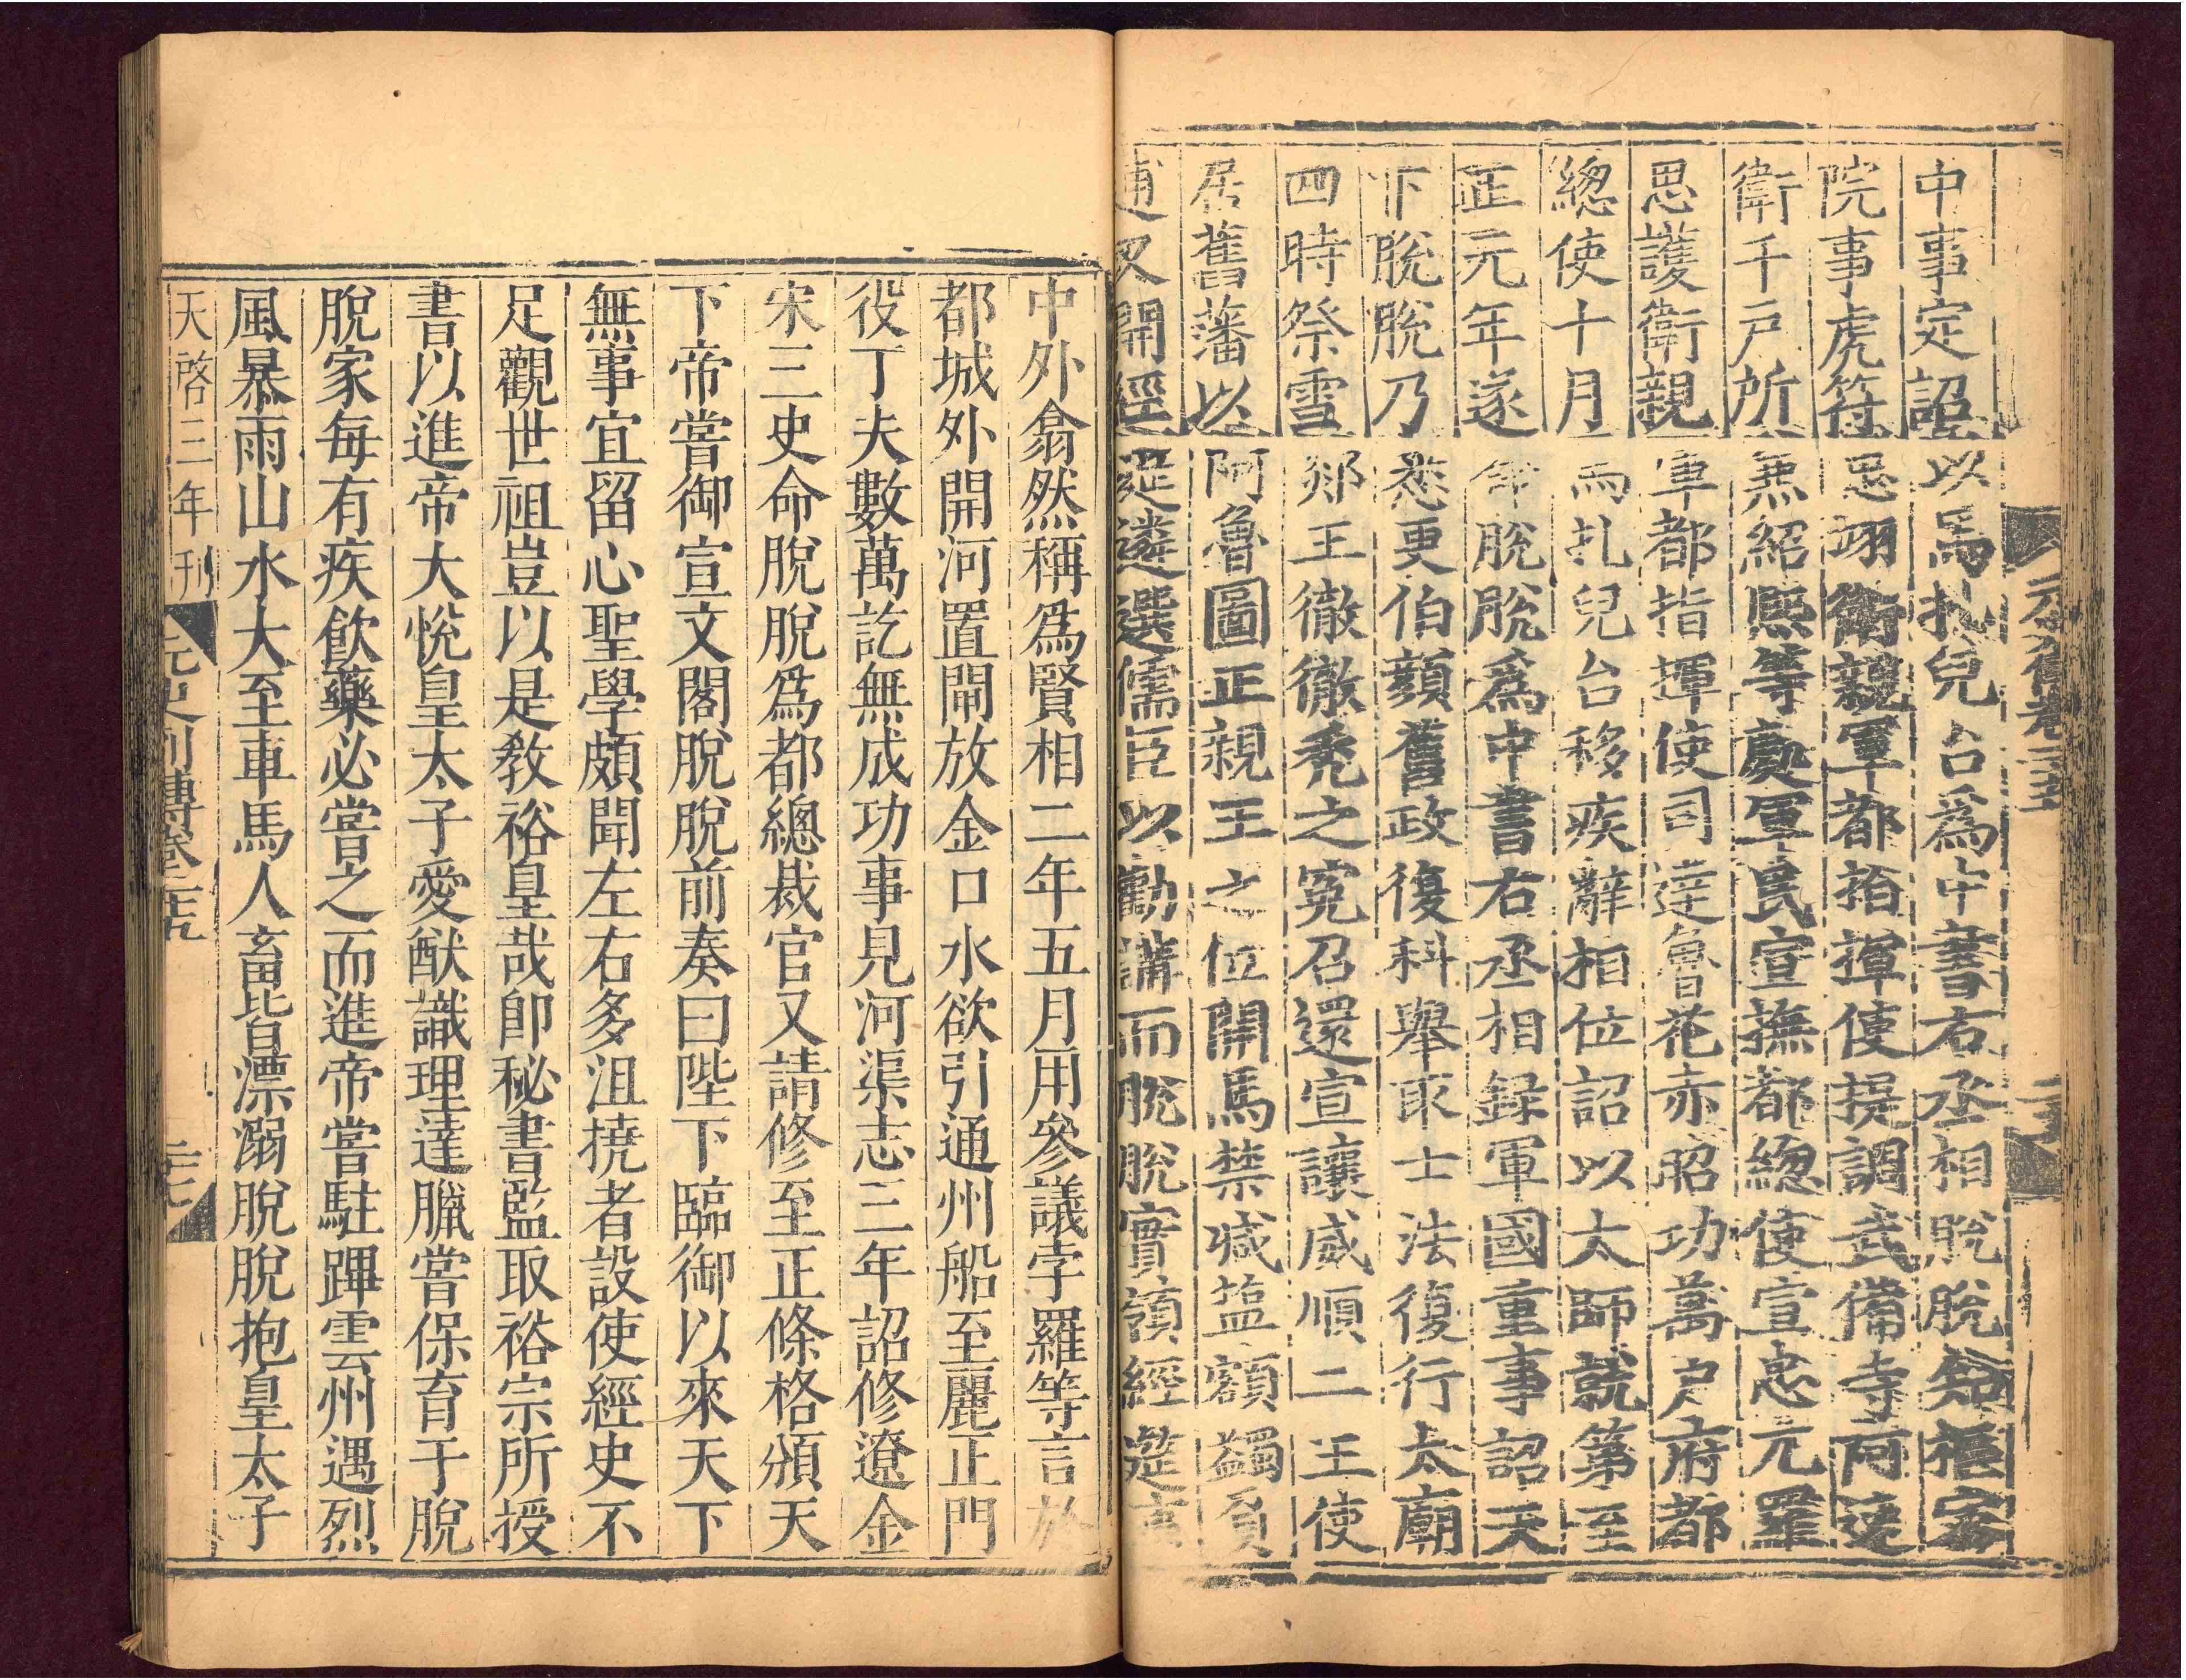 中事定詔以馬扎兒台爲中書右丞相脫脫知樞密
院事虎符忠翊衛親軍都指揮使提調武備寺阿速
衛千戶所兼紹熙等處軍民宣撫都總使宣忠兀羅
思護衛親軍都指揮使司達魯花赤昭功萬戶府都
總使十月馬扎兒台移疾辭相位詔以太師就第至
正元年遂命脫脫爲中書右丞相錄軍國重事詔天
下脫脫乃悉更伯顏舊政復科舉取士法復行太廟
四時祭雪郯王徹徹禿之冤召還宣讓威順二王使
居舊藩以阿魯圖正親王之位開馬禁減鹽額蠲負
逋又開經筵遴選儒臣以勸講而脫脫實領經筵事
中外翕然稱爲賢相二年五月用參議孛羅等言於
都城外開河置閘放金口水欲引通州船至麗正門
役丁夫數萬訖無成功事見河渠志三年詔修遼金
宋三史命脫脫爲都總裁官又請修至正條格頒天
下帝嘗御宣文閣脫脫前奏曰陛下臨御以來天下
無事宜留心聖學頗聞左右多沮撓者設使經史不
足觀世祖豈以是教裕皇哉卽秘書監取裕宗所授
書以進帝大悅皇太子愛猷識理達臘嘗保育于脫
脫家每有疾飲藥必嘗之而進帝嘗駐蹕雲州遇烈
風暴雨山水大至車馬人畜皆漂溺脫脫抱皇太子
天啓三年刊 元史列傳卷二十五